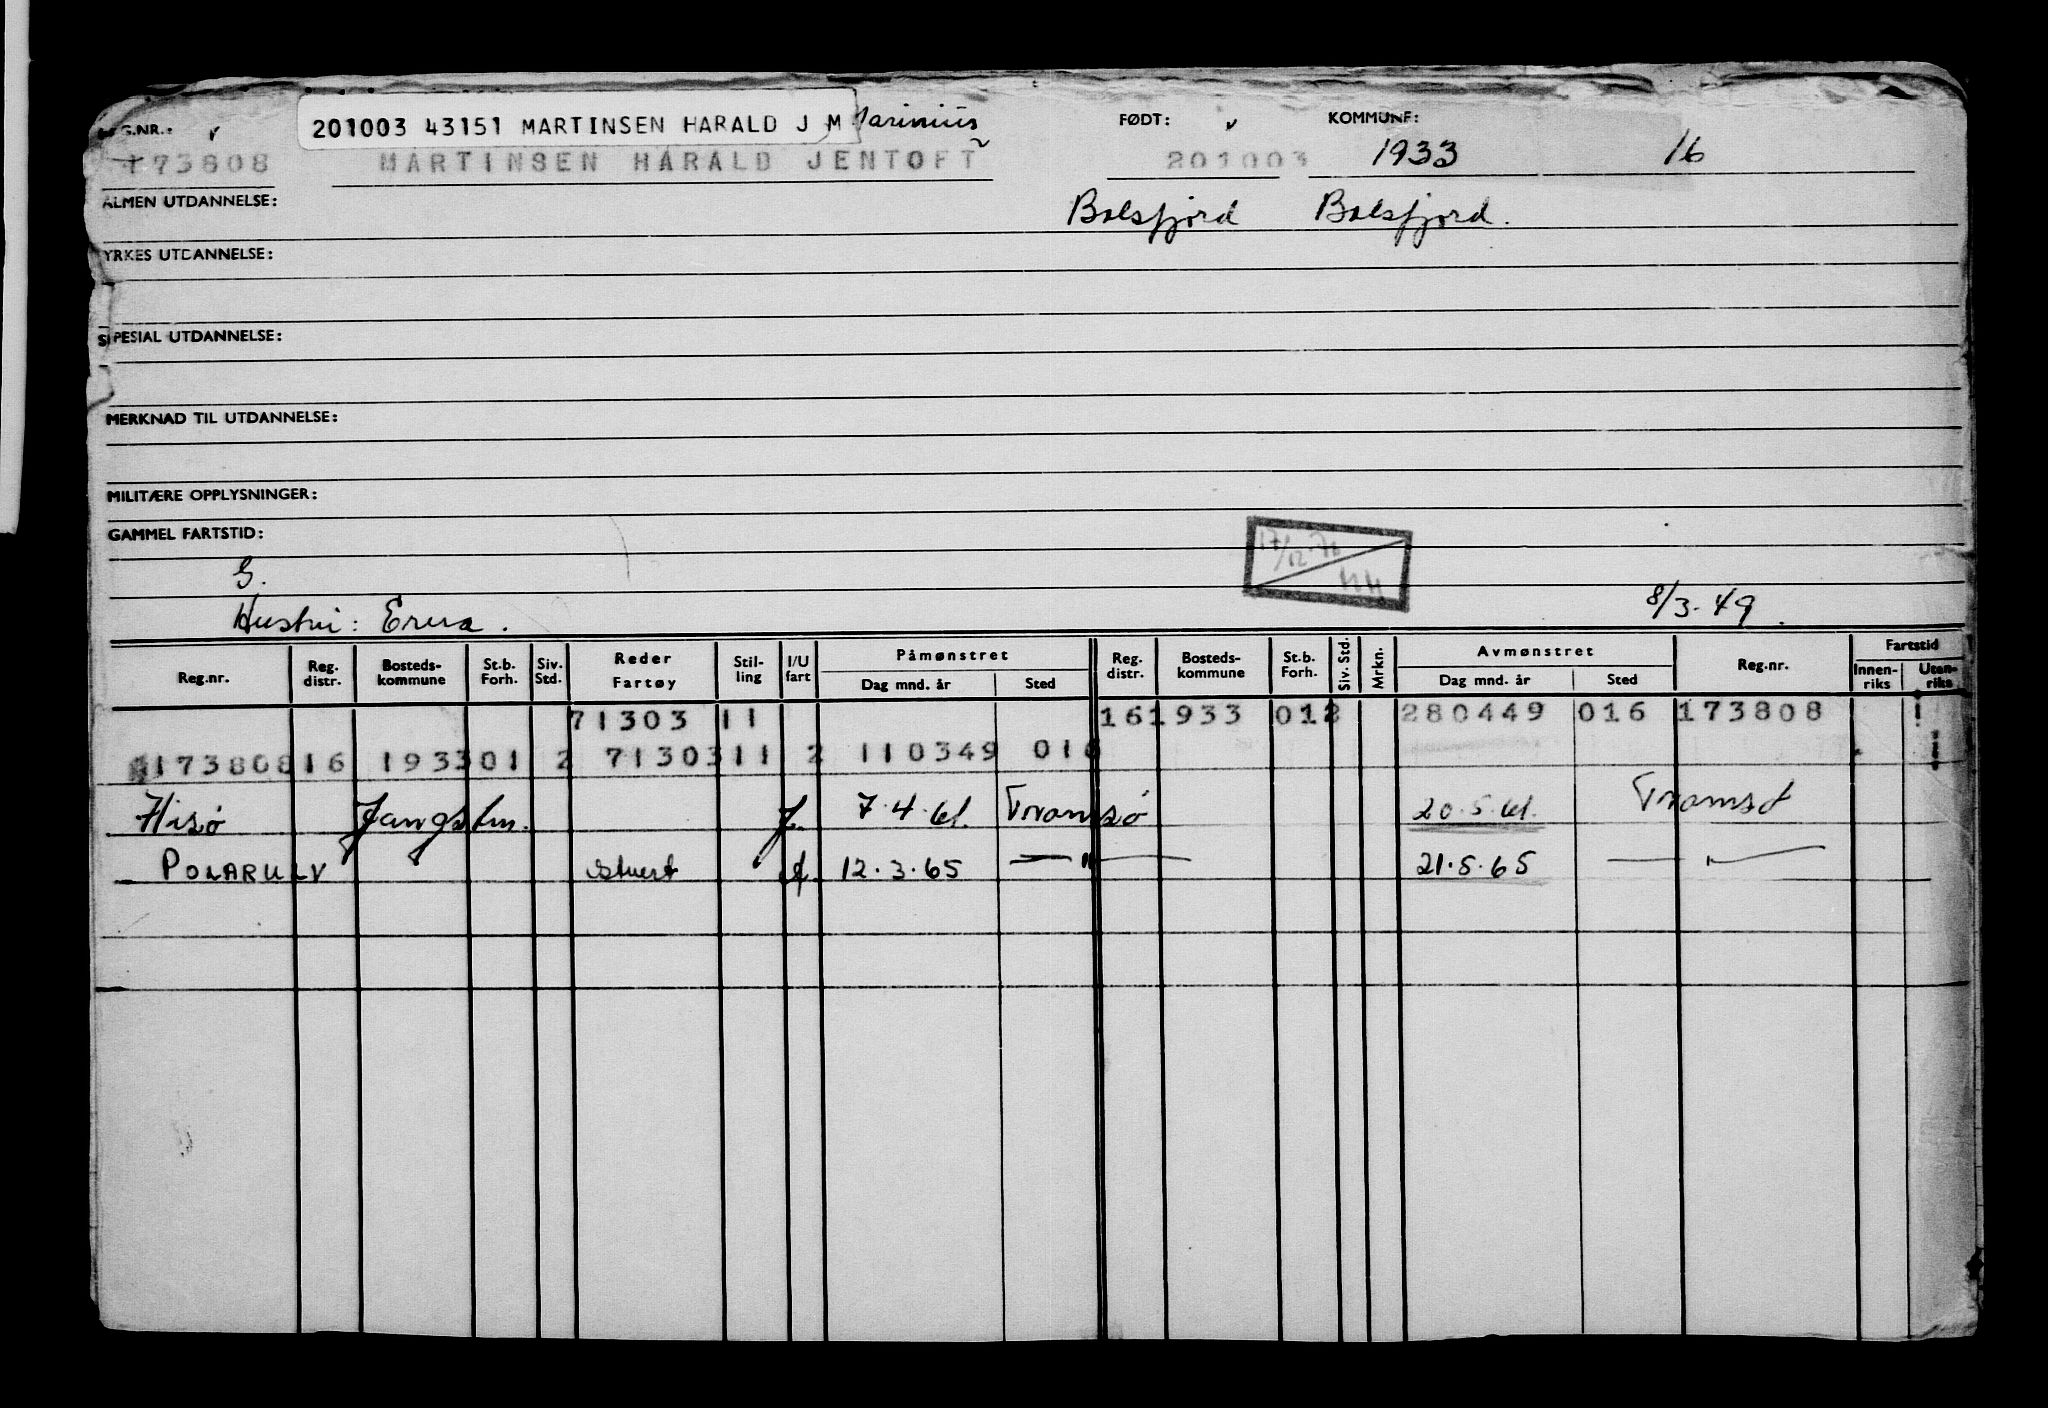 REG.NR.: v 201003 43151 MARTINSEN HARALD J M Marinius FØDT: v KOMMUNE:
173808 MARTINSEN HARALD JENTOFT 201003 1933 16
ALMEN UTDANNELSE: Balsfjord Balsfjord.
YRKES UTDANNELSE:
SPESIAL UTDANNELSE:
MERKNAD TIL UTDANNELSE:
MILITÆRE OPPLYSNINGER:
GAMMEL FARTSTID:
17/12-76
HH
G.
Hustru: Erna. 8/3-49.
Reg.nr. Reg. distr. Bosteds-kommune St.b. Forh. Siv. Std. Reder Fartøy Stil-ling I/U fart Påmønstret Dag mnd. år Sted Reg. distr. Bosteds-kommune St.b. Forh. Siv. Std. Mrkn. Avmønstret Dag mnd. år Sted Reg.nr. Fartstid Innen-riks Uten-riks
71303 11 161933 012 280449 016 173808
173808 16 1933 01 2 71303 11 2 110349 016
Hisø Fangstm. f. 7.4.61. Tromsø 20.5.61. Tromsø
POLARULV stuert f. 12.3.65 — " — 21.5.65 — " —